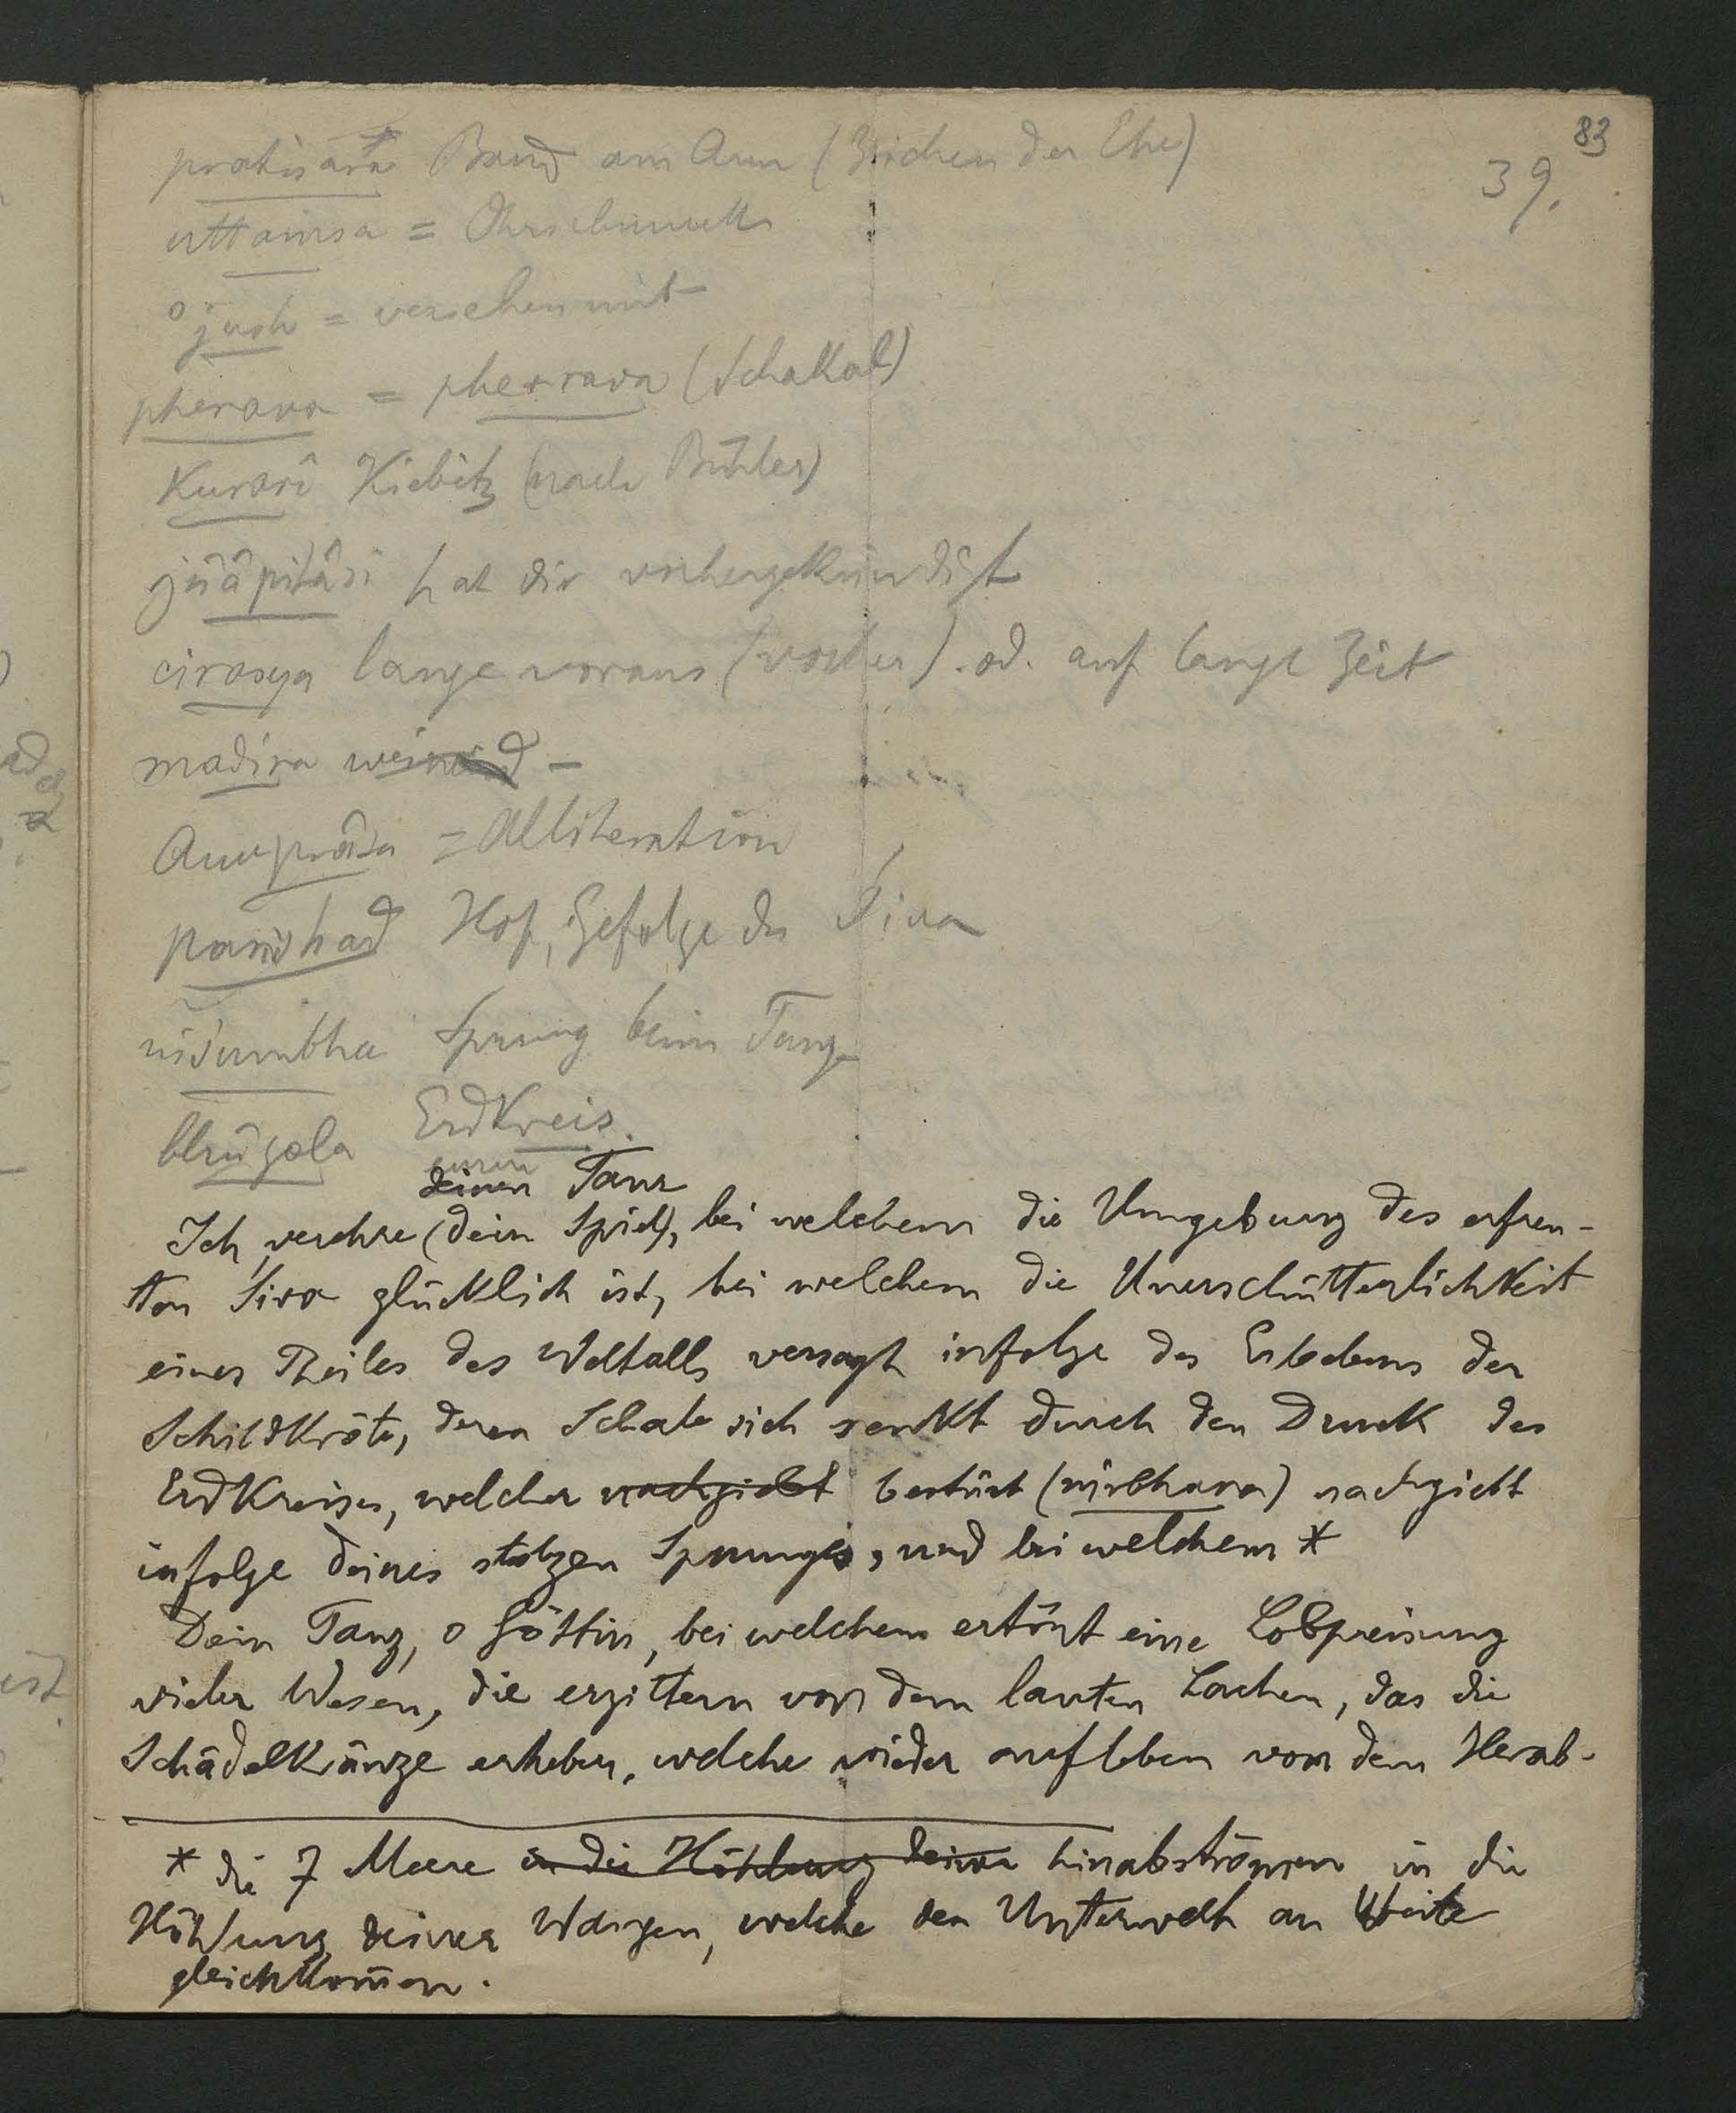 83
39.
pratisara Band am Arm (Zeichen der Ehe)
uttaṁsa = Ohrschmuck
°jush = versehen mit
pherava = pherrava (Schakal)
Kurarî Kiebitz (nach Bühler)
jñâpitâsi hat dir vorhergekündigt
cirasya lange voraus (vorher) od. auf lange Zeit
madira weinend –
Anuprâsa = Alliteration
parishad Hof, Gefolge des Śiva
niśumbha Sprung beim Tanz
bhûgola Erdkreis.
deinen Tanz
Ich verehre (dein Spiel), bei welchem die Umgebung des erfreu-
ten Śiva glücklich ist, bei welchem die Unerschütterlichkeit
eines Theiles des Weltalls versagt infolge des Erbebens der
Schildkröte, deren Schale sich senkt durch den Druck des
Erdkreises, welcher nachgiebt bestürzt (nirbhara) nachgiebt
infolge deines stolzen Sprunges, und bei welchem *
Dein Tanz, o Göttin, bei welchem ertönt eine Lobpreisung
vieler Wesen, die erzittern von dem lauten Lachen, das die
Schädelkränze erheben, welche wieder aufleben von dem Herab-
* die 7 Meere in die Höhlung deiner hinabströmen in die
Höhlung deiner Wangen, welche der Unterwelt an Weite
gleichkom̄en.